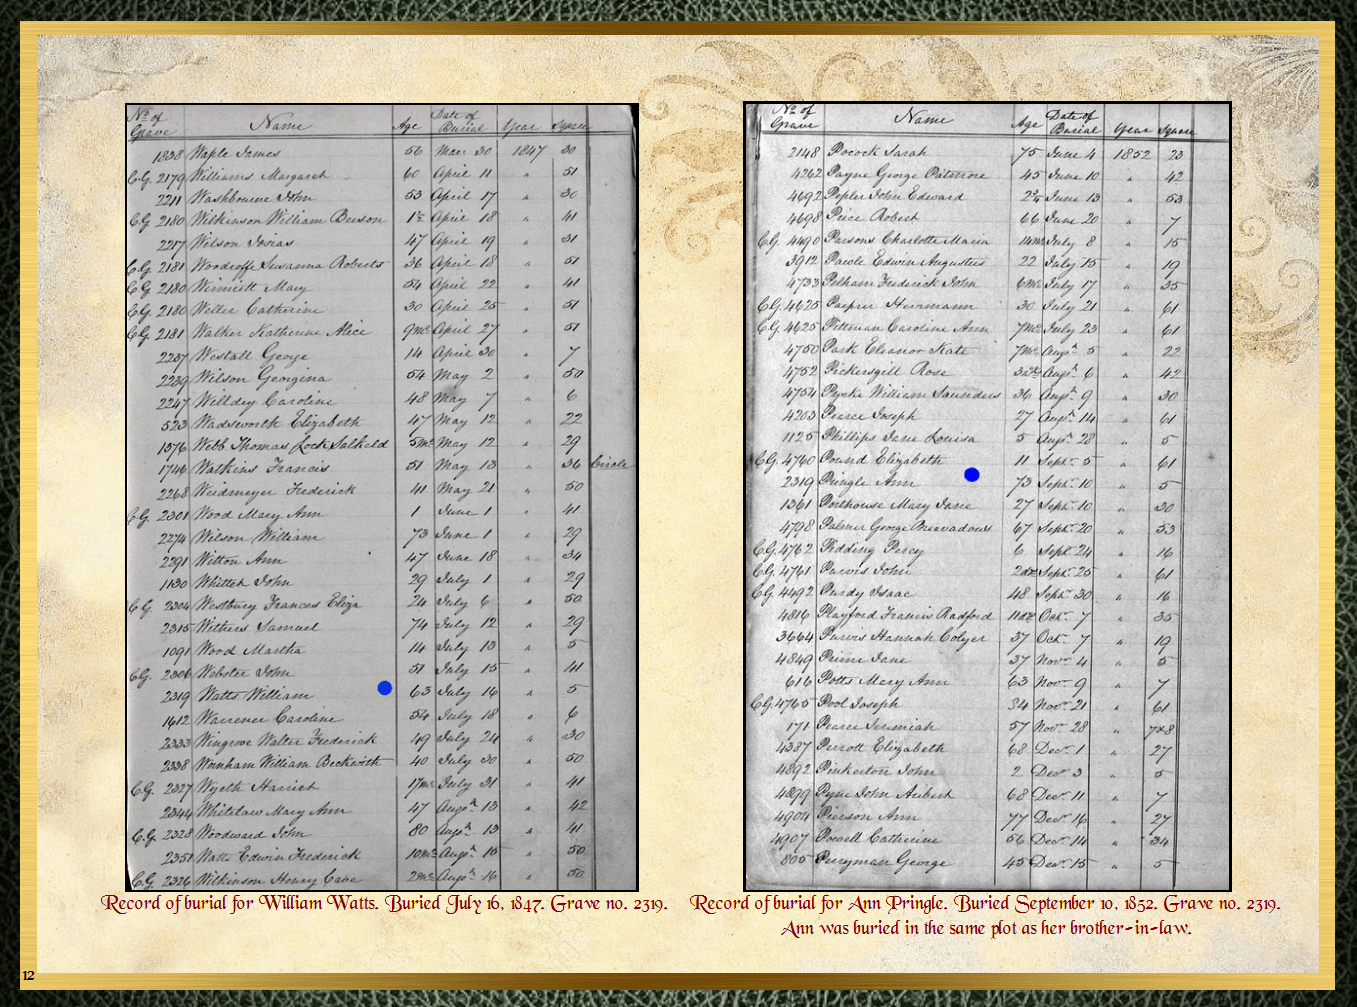 No. of Grave Name Age Date of Burial Year Square
1838 Waple James 56 Mar 30 1847 30
C.G. 2179 Williams Margaret 60 April 11 " 51
2211 Washbourne John 53 April 17 " 30
C.G. 2180 Wilkinson William Berson 1½ April 18 " 41
2217 Wilson Josias 47 April 19 " 31
C.G. 2181 Woodroffe Susanna Roberts 36 April 18 " 51
C.G. 2180 Winnett Mary 54 April 22 " 41
C.G. 2180 Weller Catherine 30 April 25 " 51
C.G. 2181 Walker Katherine Alice 9ms April 27 " 51
2237 Westall George 14 April 30 " 7
2239 Wilson Georgina 54 May 2 " 50
2247 Welldey Caroline 48 May 7 " 6
523 Wadsworth Elizabeth 47 May 12 " 22
1376 Webb Thomas Lock Salkeld 5ms May 12 " 29
1746 Watkins Francis 51 May 13 " 36 Circle
2268 Weidmeyer Frederick 41 May 21 " 50
C.G. 2301 Wood Mary Ann 1 June 1 " 41
2274 Wilson William 73 June 1 " 29
2291 Witton Ann 47 June 18 " 34
1130 Whitted John 29 July 1 " 29
C.G. 2304 Westbury Frances Eliza 24 July 6 " 50
2315 Withers Samuel 74 July 12 " 29
1091 Wood Martha 14 July 13 " 5
C.G. 2306 Webster John 51 July 15 " 41
2319 Watts William 63 July 16 " 5
1612 Warrener Caroline 54 July 18 " 6
2333 Wingrove Walter Frederick 49 July 24 " 30
2338 Wornham William Beckwith 40 July 30 " 50
C.G. 2327 Wyeth Harriet 17ms July 31 " 41
2344 Whitelaw Mary Ann 47 Augst 13 " 42
C.G. 2328 Woodward John 80 Augst 13 " 41
2351 Watts Edwin Frederick 10ms Augst 15 " 50
C.G. 2326 Wilkinson Henry Cave 2ms Augst 16 " 50
Record of burial for William Watts. Buried July 16, 1847. Grave no. 2319.
No. of Grave Name Age Date of Burial Year Square
2148 Pocock Sarah 75 June 4 1852 23
4262 Payne George Patmore 45 June 10 " 42
4692 Pepler John Edward June 13 " 53
4698 Peice Robert 66 June 20 " 7
C.G. 4490 Parsons Charlotte Maria 14ms July 8 " 15
3912 Pawle Edwin Augustus 22 July 15 " 19
4733 Pelham Frederick John 6ms July 17 " 35
C.G. 4625 Herrmann 30 July 21 " 61
C.G. 4625 Petteman Caroline Ann 7ms July 23 " 61
4750 Park Eleanor Kate 7ms Augst 5 " 22
4752 Pickersgill Rose Augst 6 " 42
4754 William Saunders 36 Augst 9 " 30
4203 Pearce Joseph 27 Augst 14 " 61
1125 Phillips Jane Louisa 5 Augst 28 " 5
C.G. 4760 Pound Elizabeth 11 Septr 5 " 61
2319 Pringle Ann 73 Septr 10 " 5
1361 Porthouse Mary Jane 27 Septr 10 " 30
4798 Palmer George 67 Septr 20 " 53
C.G. 4762 Pidding Percy 6 Septr 24 " 16
C.G. 4761 Purvis John Septr 25 " 61
C.G. 4492 Purdy Isaac 48 Septr 30 " 16
4816 Playford Francis Radford Octr 7 " 35
3664 Purvis Hannah Colyer 37 Octr 7 " 19
4849 Prime Jane 37 Novr 4 " 5
616 Potts Mary Ann 63 Novr 9 " 7
C.G. 4765 Pool Joseph 34 Novr 21 " 61
171 Pearce Jeremiah 57 Novr 28 " 7&8
4387 Perrott Elizabeth 68 Decr 1 " 27
4892 Pinkerton John 2 Decr 3 " 5
4899 Pyne John Aubert 68 Decr 11 " 7
4904 Pierson Ann 77 Decr 16 " 27
4907 Powell Catherine 56 Decr 14 " 34
805 Perryman George 45 Decr 15 " 5
Record of burial for Ann Pringle. Buried September 10, 1852. Grave no. 2319.
Ann was buried in the same plot as her brother-in-law.
12